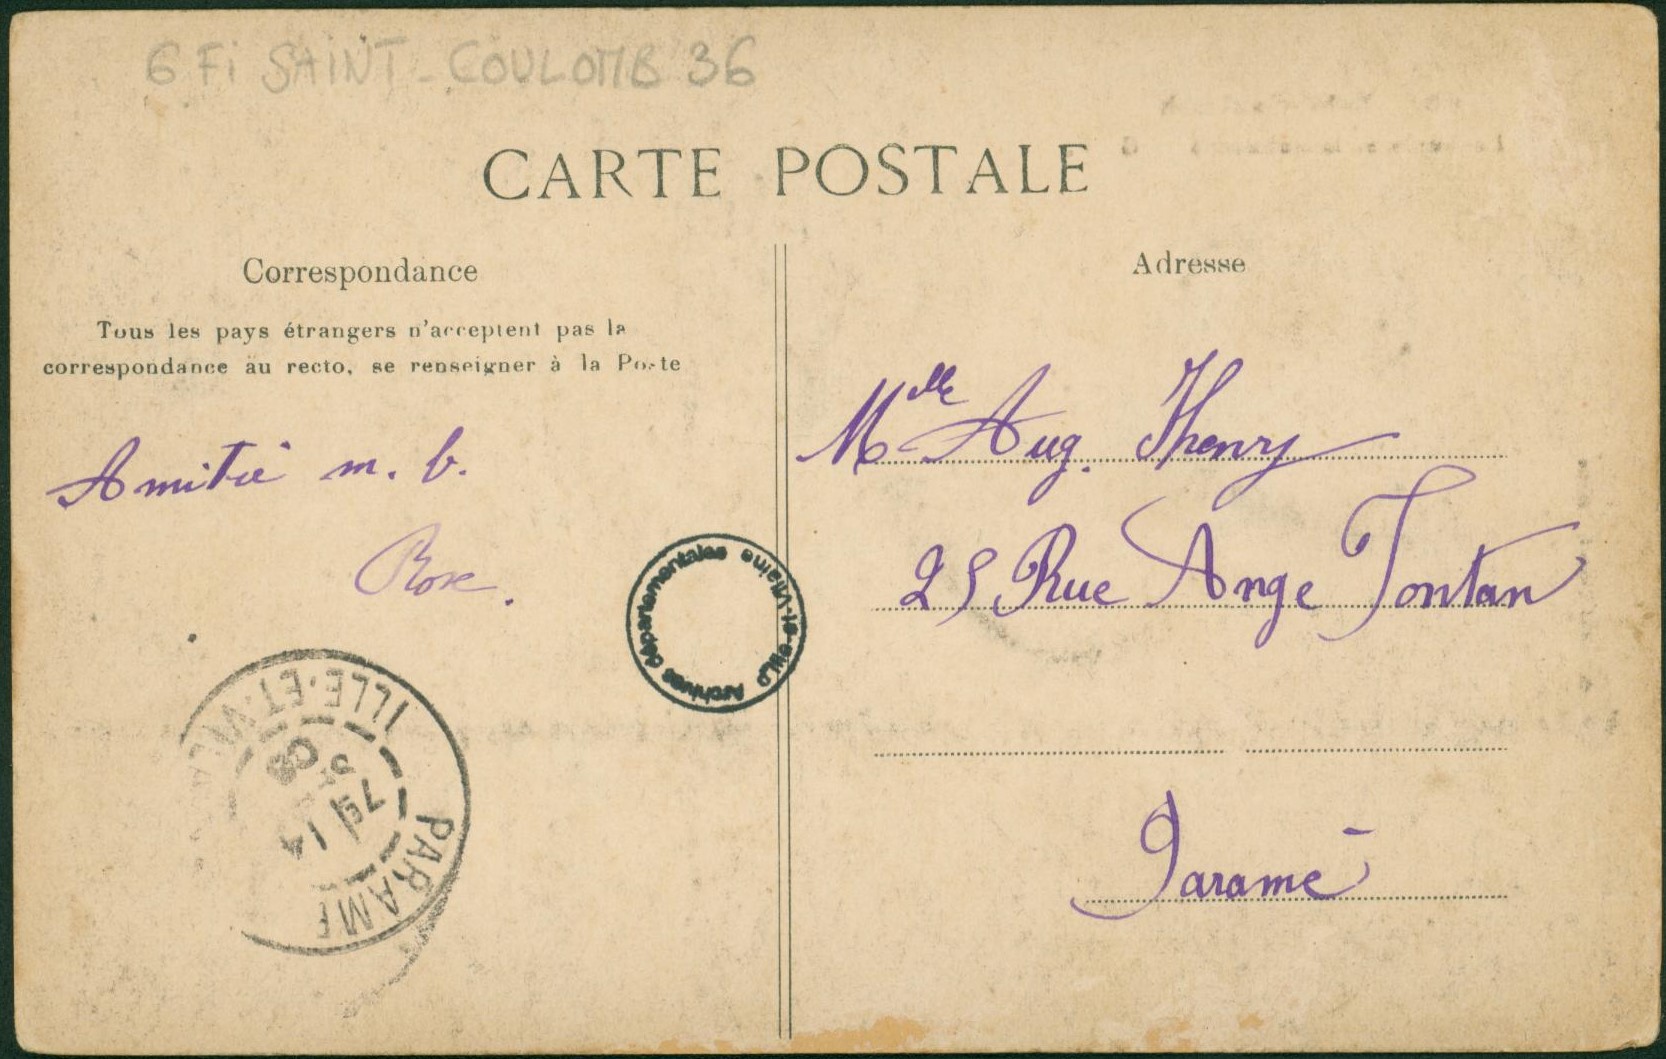 6 Fi SAINT-COULOMB 36
CARTE POSTALE
Correspondance
Tous les pays étrangers n'acceptent pas la
correspondance au recto, se renseigner à la Poste
Amitié m. b.
Rose.
Adresse
Mlle Aug. Thenry
25 Rue Ange Fontan
Paramé
Archives départementales
d'Ille-et-Vilaine
ILLE-ET-VILAINE
PARAME